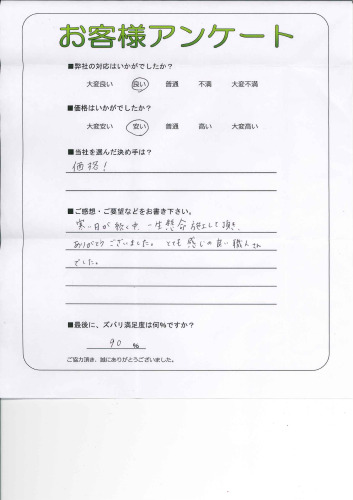 お客様アンケート
■弊社の対応はいかがでしたか?
大変良い 良い 普通 不満 大変不満
■価格はいかがでしたか?
大変安い 安い 普通 高い 大変高い
■当社を選んだ決め手は?
価格!
■ご感想・ご要望などをお書き下さい。
寒い日が続く中 一生懸命 施工して頂き、
ありがとうございました。とても感じの良い職人さん
でした。
■最後に、ズバリ満足度は何%ですか?
90 %
ご協力頂き、誠にありがとうございました。